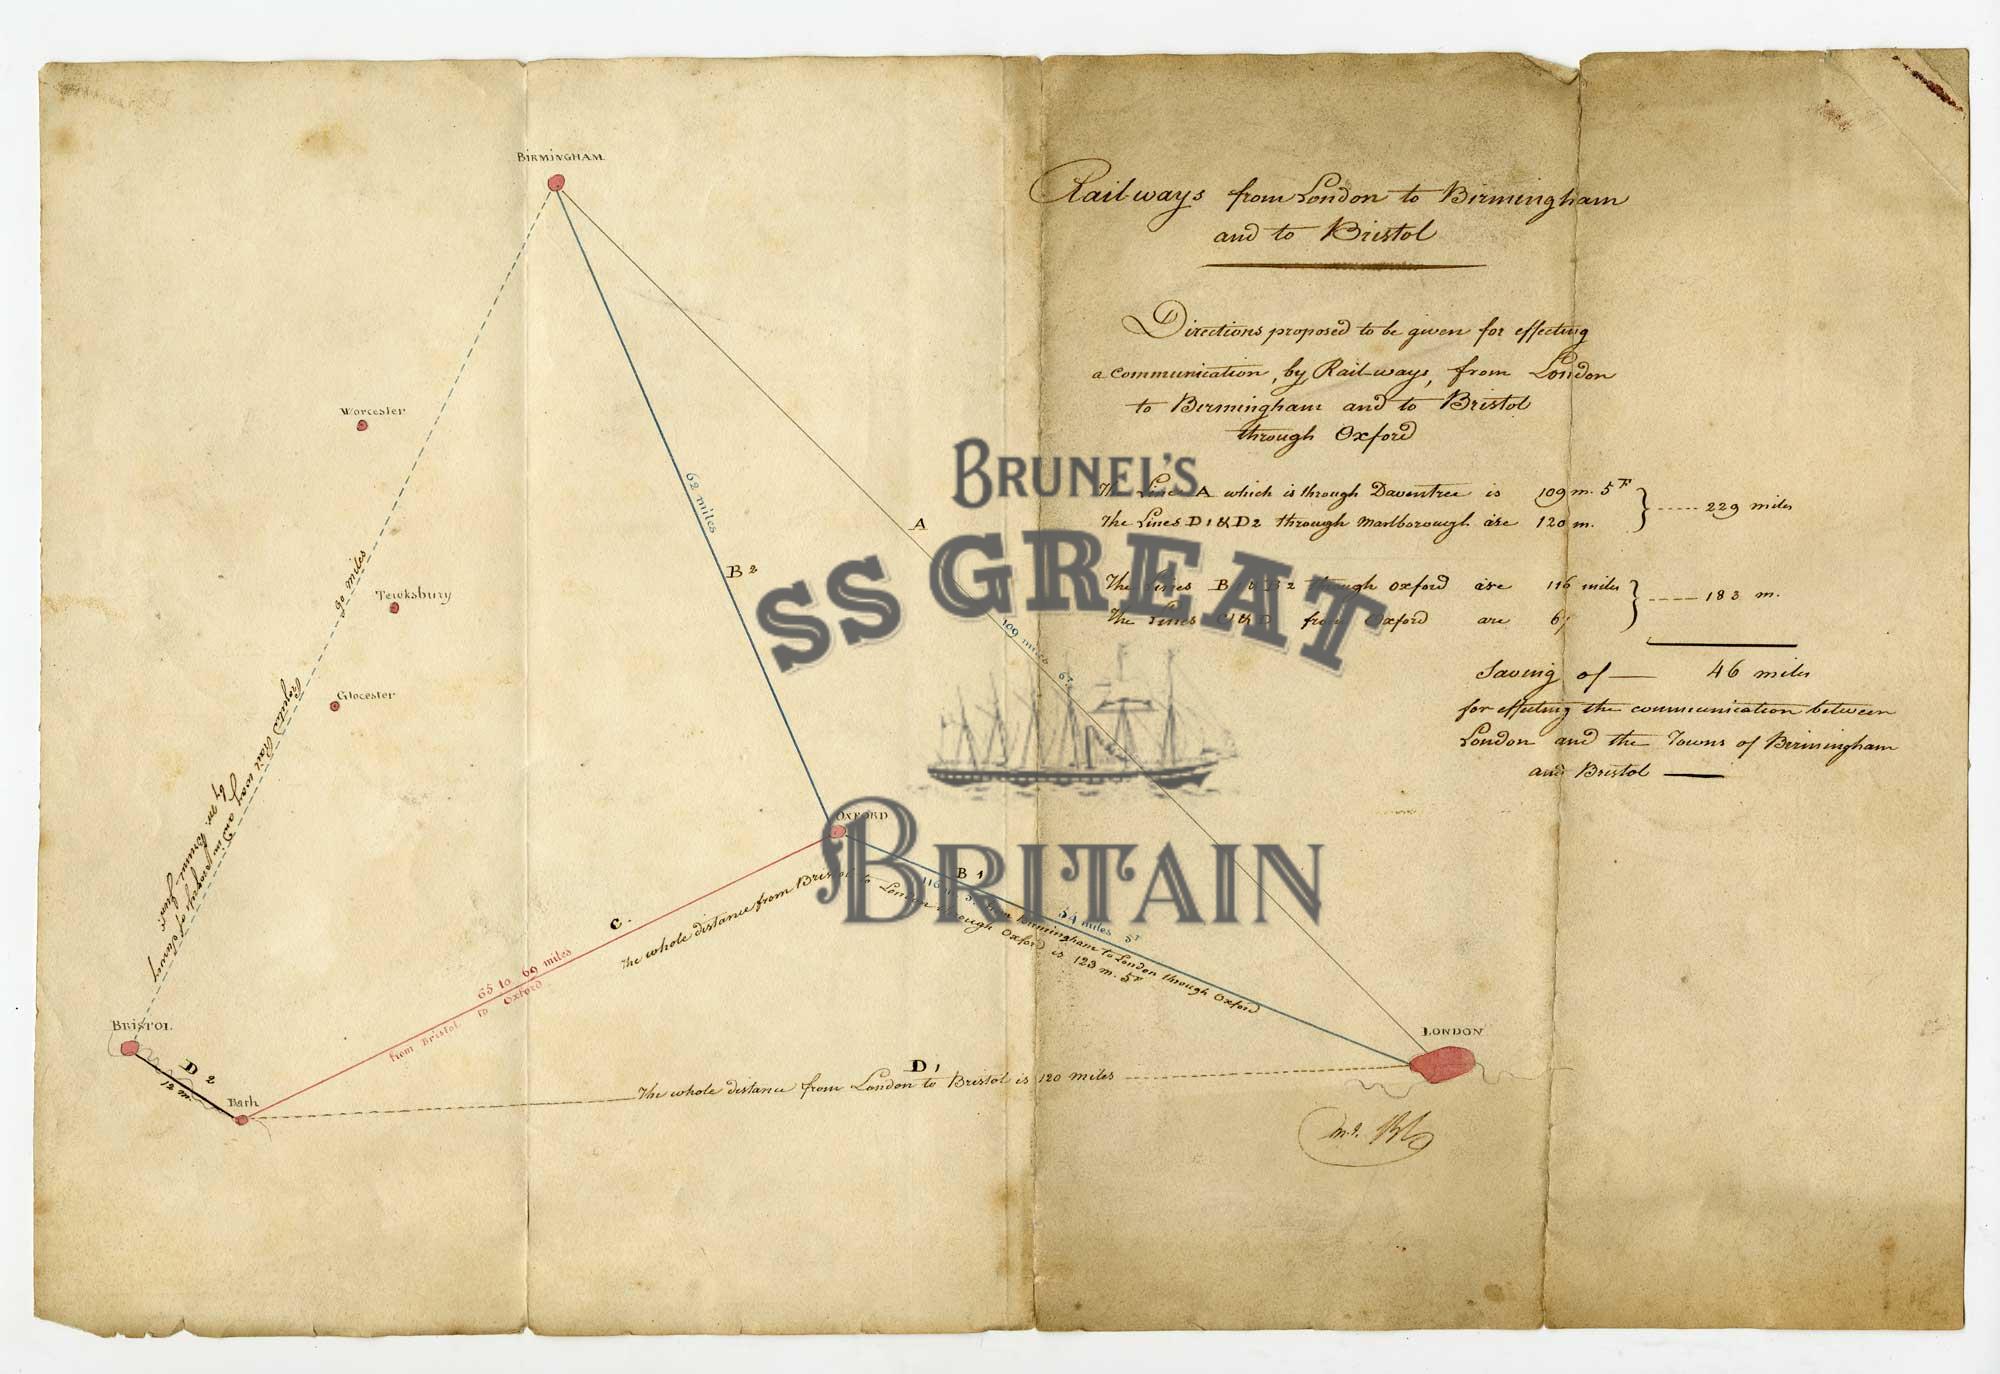 BIRMINGHAM
Railways from London to Birmingham
and to Bristol
Directions proposed to be given for effecting
a communication, by Rail-ways, from London
to Birmingham and to Bristol
through Oxford
The Line A which is through Daventree is 109 m. 5F
The Lines D1 & D2 through Marlborough are 120 m.
229 miles
The Lines B1 & B2 through Oxford are 116 miles
The Lines C1 & D from Oxford are
183 m.
Saving of — 46 miles
for effecting the communication between
London and the Towns of Birmingham
and Bristol —
Worcester
Tewksbury
Glocester
90 miles
Rail way
by Mr.
62 miles
B2
A
109 miles
BRUNEL'S
SS GREAT
BRITAIN
OXFORD
B1
54 miles 5F
116 m 5F from Birmingham to London through Oxford
The whole distance from Bristol to London through Oxford is 123 m. 5F
C.
65 to 69 miles
from Bristol to Oxford
BRISTOL
D2
12 m.
Bath
D1
The whole distance from London to Bristol is 120 miles
LONDON